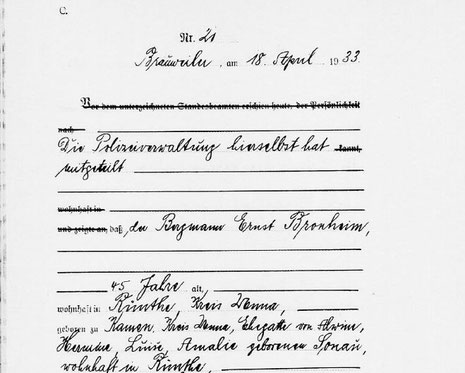 C.
Nr. 21
Brauweiler, am 18. April 1933.
Vor dem unterzeichneten Standesbeamten erschien heute, der Persönlichkeit
nach
Die Polizeiverwaltung hierselbst hat kannt,
mitgeteilt
wohnhaft in
und zeigte an, daß, der Bergmann Ernst Bronheim,
45 Jahre alt,
wohnhaft in Rünthe, Kreis Unna,
geboren zu Kamen, Kreis Unna, Ehegatte von Alwine,
Hermine, Luise, Amalie geborenen Sonau,
wohnhaft in Rünthe,